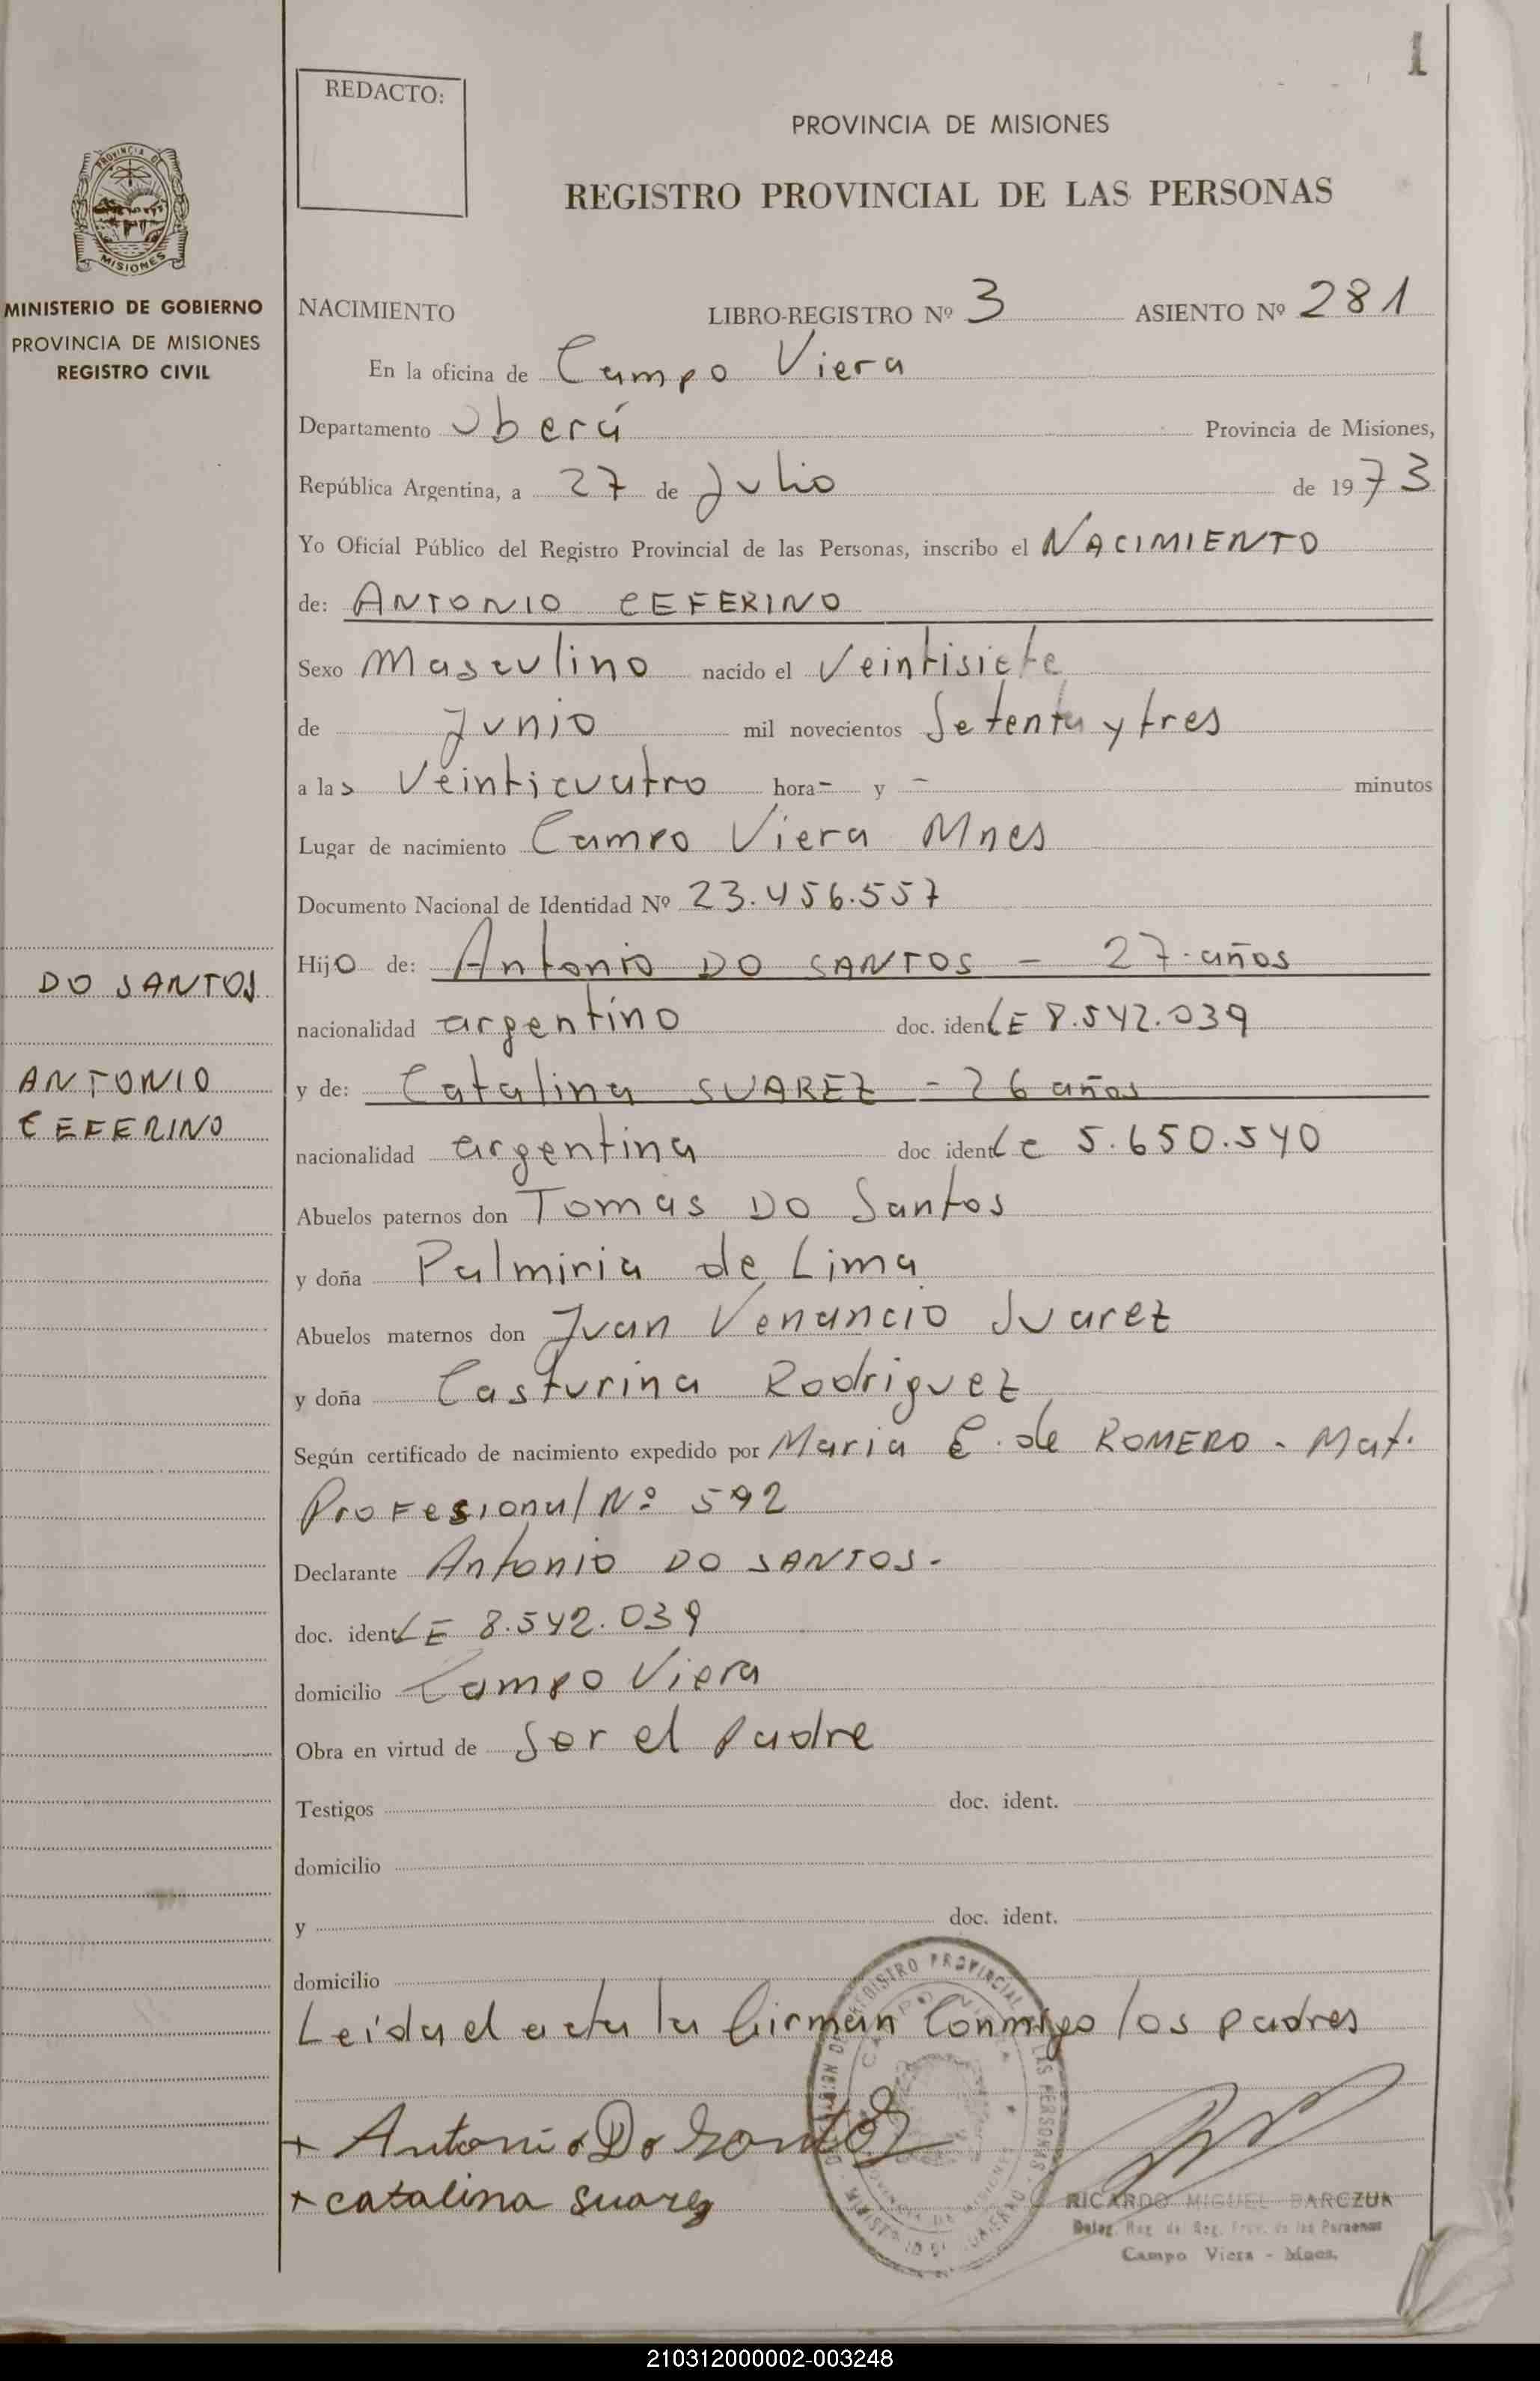 1
REDACTO:
PROVINCIA DE MISIONES
REGISTRO PROVINCIAL DE LAS PERSONAS
PROVINCIA DE
MISIONES
MINISTERIO DE GOBIERNO
PROVINCIA DE MISIONES
REGISTRO CIVIL
NACIMIENTO LIBRO-REGISTRO Nº 3 ASIENTO Nº 281
En la oficina de Campo Viera
Departamento Oberá Provincia de Misiones,
República Argentina, a 27 de Julio de 1973
Yo Oficial Público del Registro Provincial de las Personas, inscribo el NACIMIENTO
de: ANTONIO CEFERINO
Sexo Masculino nacido el Veintisiete
de Junio mil novecientos Setenta y tres
a las Veinticuatro hora - y - minutos
Lugar de nacimiento Campo Viera Mnes
Documento Nacional de Identidad Nº 23.456.557
Hijo de: Antonio DO SANTOS - 27 años
DO SANTOS
nacionalidad argentino doc. ident LE 8.542.039
ANTONIO
y de: Catalina SUAREZ - 26 años
CEFERINO
nacionalidad argentina doc ident LC 5.650.540
Abuelos paternos don Tomas DO Santos
y doña Palmiria de Lima
Abuelos maternos don Juan Venancio Suarez
y doña Casturina Rodriguez
Según certificado de nacimiento expedido por Maria E. de ROMERO - Mat.
Profesional Nº 592
Declarante Antonio DO SANTOS.
doc. ident LE 8.542.039
domicilio Campo Viera
Obra en virtud de Ser el Padre
Testigos doc. ident.
domicilio
y doc. ident.
domicilio
Leida el acta la firman Conmigo los padres
+ Antonio Do Santos
+ catalina suarez
RICARDO MIGUEL BARCZUK
Campo Viera - Mnes.
210312000002-003248